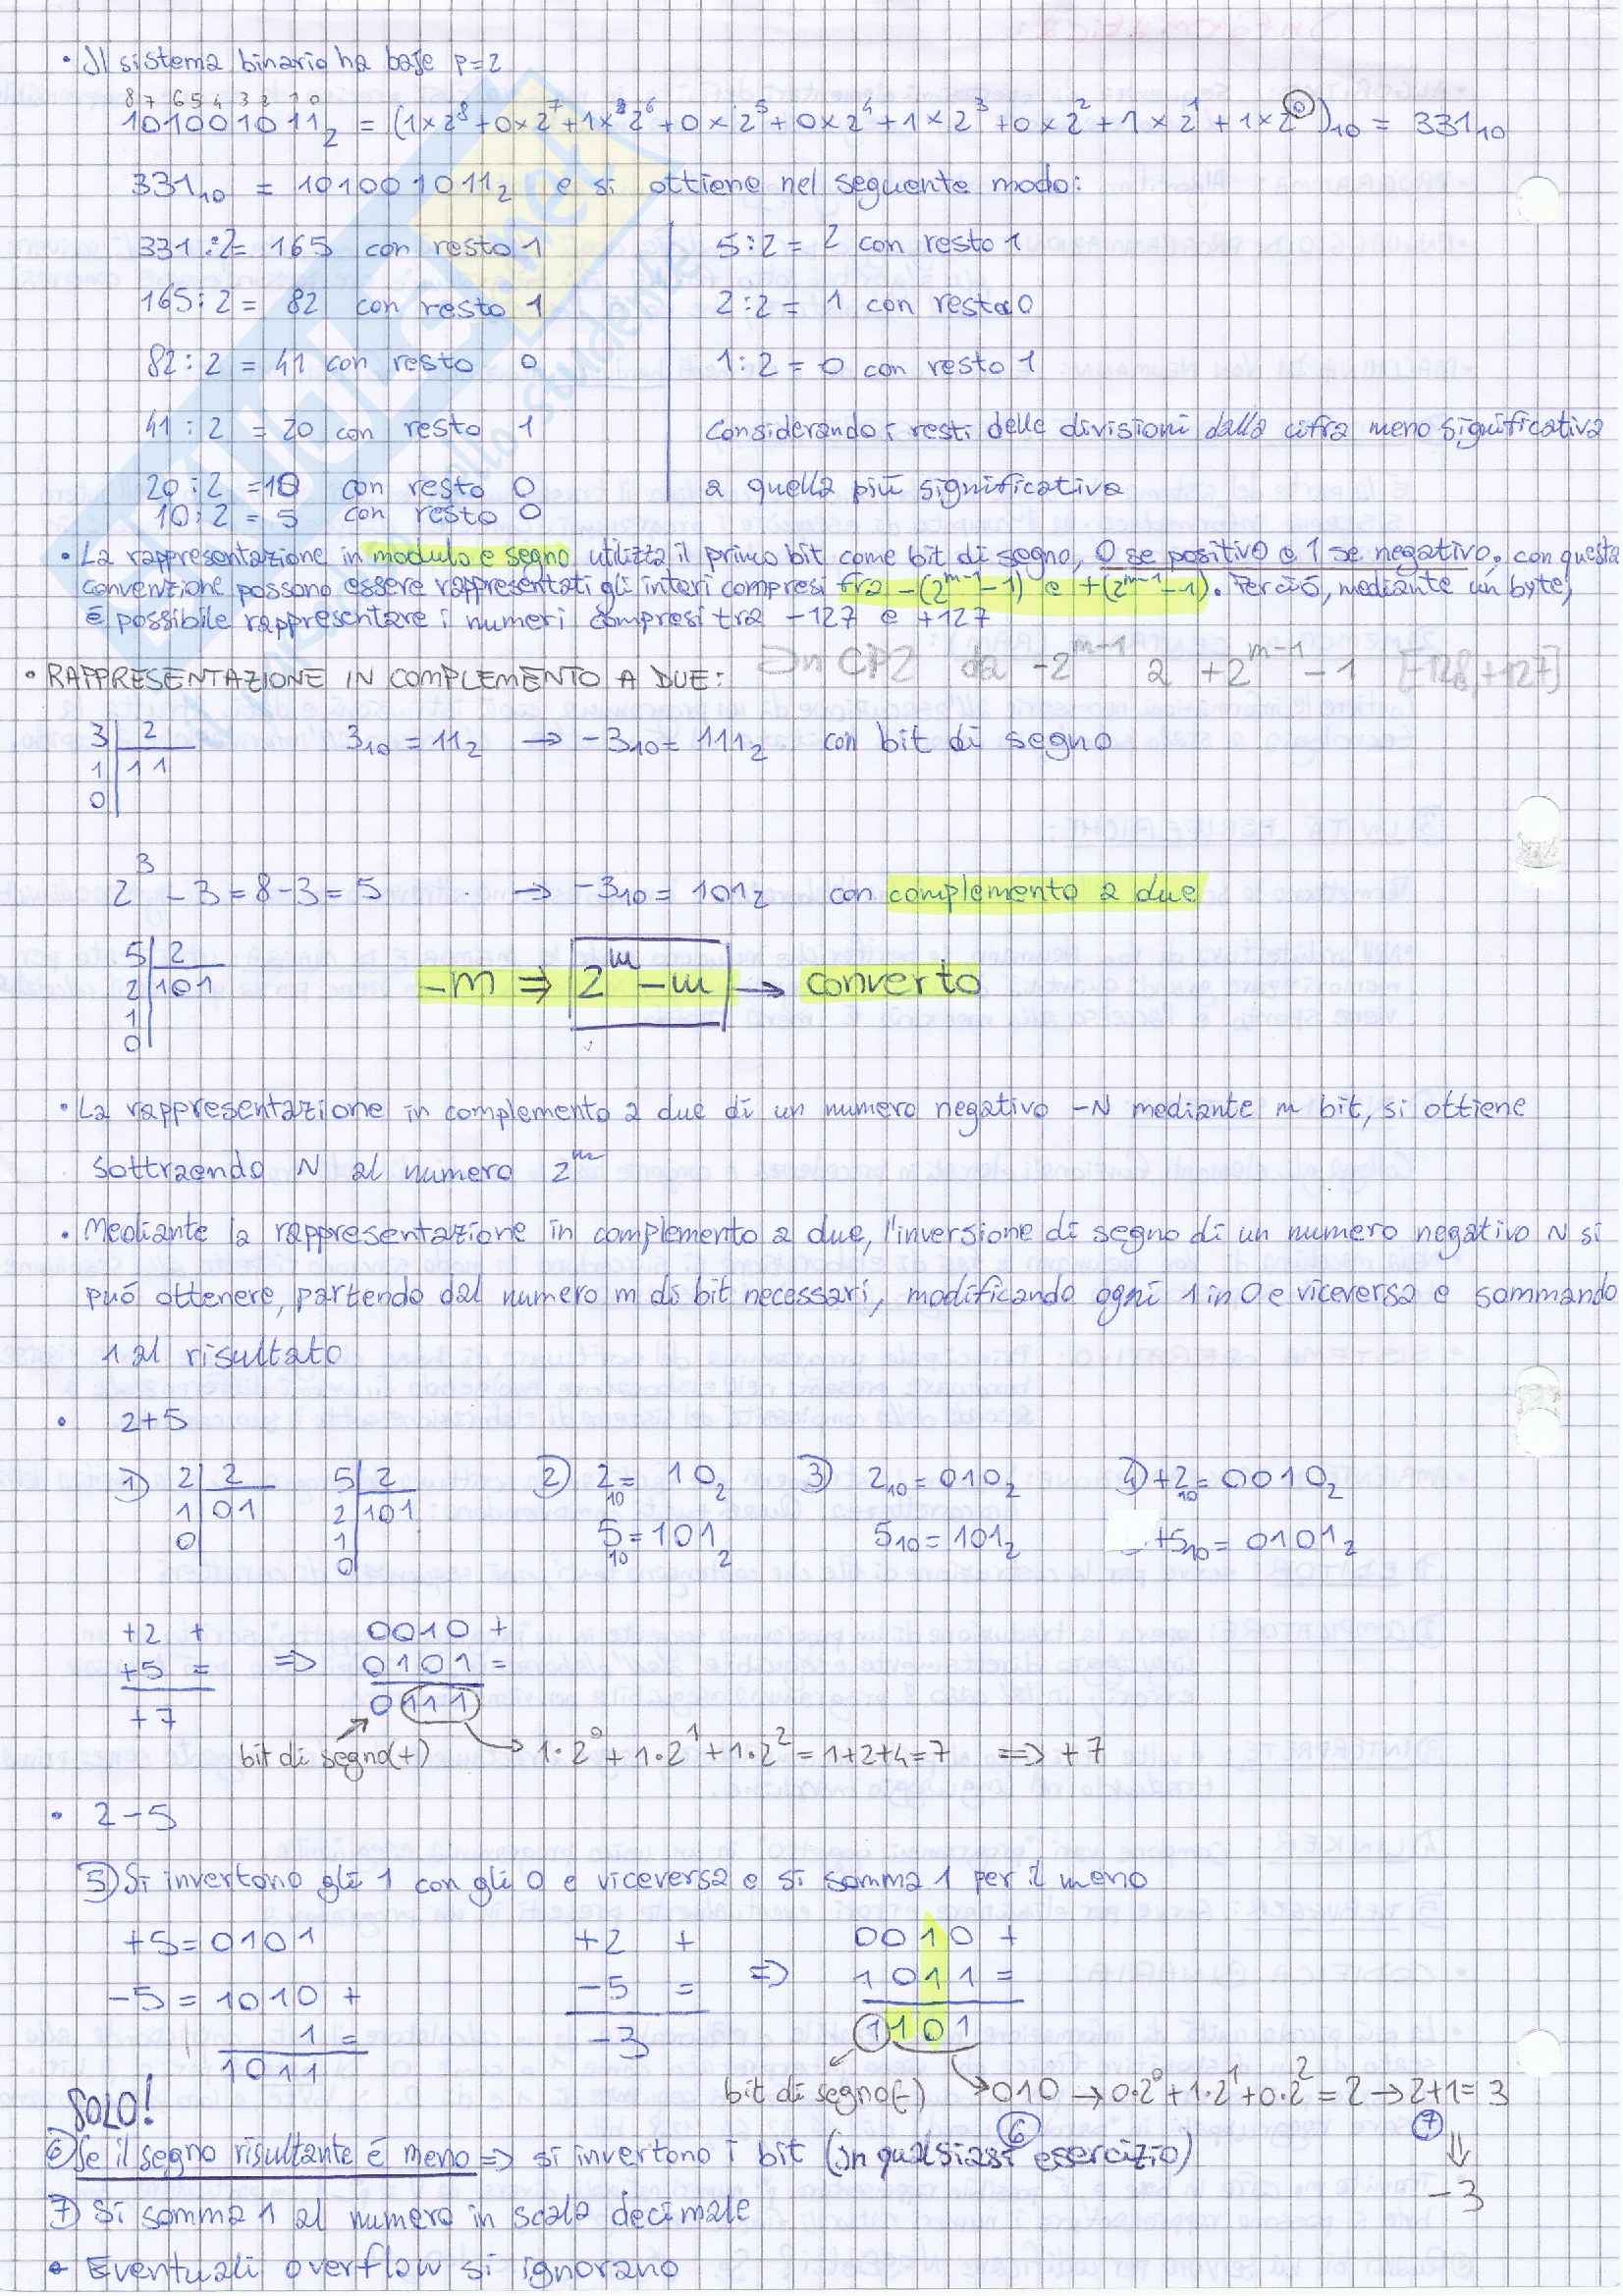 • Il sistema binario ha base p=2
8 7 6 5 4 3 2 1 0
101001011₂ = (1×2⁸+0×2⁷+1×2⁶+0×2⁵+0×2⁴+1×2³+0×2²+1×2¹+1×2⁰)₁₀ = 331₁₀
331₁₀ = 101001011₂ e si ottiene nel seguente modo:
331:2=165 con resto 1
165:2= 82 con resto 1
82:2=41 con resto 0
41:2=20 con resto 1
20:2=10 con resto 0
10:2=5 con resto 0
5:2=2 con resto 1
2:2=1 con resto 0
1:2=0 con resto 1
Considerando i resti delle divisioni dalla cifra meno significativa
a quella più significativa
• La rappresentazione in modulo e segno utilizza il primo bit come bit di segno, 0 se positivo e 1 se negativo. con questa
convenzione possono essere rappresentati gli interi compresi fra -(2ᵐ⁻¹-1) e +(2ᵐ⁻¹-1). Perciò, mediante un byte,
é possibile rappresentare i numeri compresi tra -127 e +127
• RAPPRESENTAZIONE IN COMPLEMENTO A DUE: In CP2 da -2ᵐ⁻¹ a +2ᵐ⁻¹-1 [-128,+127]
3 | 2
1 | 11
0 |
3₁₀=11₂ → -3₁₀=111₂ con bit di segno
2³-3=8-3=5 → -3₁₀=101₂ con complemento a due
5 | 2
2 | 101
1
0
-m ⇒ 2ᵐ-m → converto
• La rappresentazione in complemento a due di un numero negativo -N mediante m bit, si ottiene
sottraendo N al numero 2ᵐ
• Mediante la rappresentazione in complemento a due, l'inversione di segno di un numero negativo N si
puó ottenere, partendo dal numero m di bit necessari, modificando ogni 1 in 0 e viceversa e sommando
1 al risultato
• 2+5
1) 2 | 2   5 | 2   2) 2₁₀= 10₂   3) 2₁₀=010₂   4) +2₁₀=0010₂
1 | 01   2 | 101   5₁₀=101₂   5₁₀=101₂   +5₁₀=0101₂
0   1
0
+2 +   0010 +
+5 =   ⇒   0101 =
+7   0111
bit di segno(+)   → 1·2⁰+1·2¹+1·2²=1+2+4=7 ⇒ +7
• 2-5
5) Si invertono gli 1 con gli 0 e viceversa e si somma 1 per il meno
+5=0101   +2 +   0010 +
-5=1010 +   -5 =   ⇒   1011 =
1 =   -3   1101
1011
bit di segno(-)   → 010 → 0·2⁰+1·2¹+0·2²=2 → 2+1=3
6   7
⇓
-3
SOLO!
6) Se il segno risultante é meno ⇒ si invertono i bit (in qualsiasi esercizio)
7) Si somma 1 al numero in scala decimale
• Eventuali overflow si ignorano